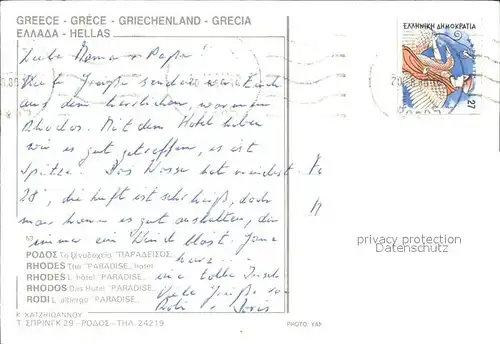 GREECE - GRÈCE - GRIECHENLAND - GRECIA
ΕΛΛΑΔΑ - HELLAS
ΕΛΛΗΝΙΚΗ ΔΗΜΟΚΡΑΤΙΑ
27
Liebe Mama + Papa!
Viele Grüße senden wir Euch
aus dem herrlichen, warmen
Rhodos. Mit dem Hotel haben
wir es gut getroffen, es ist
Spitze. Das Wasser hat mindest.
28°, die Luft ist sehr heiß, doch
man kann es gut aushalten, da
immer ein Wind bläst. Ganz
kurz:
eine tolle Insel
Viele Grüße von
+ Doris
53
ΡΟΔΟΣ Το ξενοδοχείο "ΠΑΡΑΔΕΙΣΟΣ"
RHODES The "PARADISE" hotel
RHODES L' hôtel "PARADISE"
RHODOS Das Hotel "PARADISE"
RODI L' albergo "PARADISE"
Κ. ΧΑΤΖΗΙΩΑΝΝΟΥ
Τ. ΣΠΡΙΝΓΚ 29 - ΡΟΔΟΣ - ΤΗΛ. 24219
PHOTO: YAN
privacy protection
Datenschutz